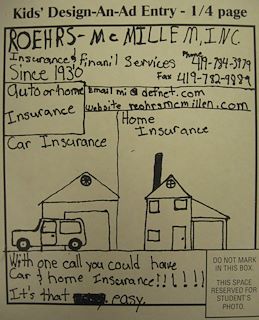 Kids' Design-An-Ad Entry - 1/4 page
ROEHRS-McMILLEM, INC.
Insurance & Finanil Services Phone 419-784-3979
Since 1930 Fax 419-782-9889
Auto or home Email mi@defnet.com
Insurance website reohrsmcmillen.com
Home
Insurance
Car Insurance
With one call you could have
Car & home Insurance!!!!!!
It's that easy.
DO NOT MARK
IN THIS BOX.
THIS SPACE
RESERVED FOR
STUDENT'S
PHOTO.